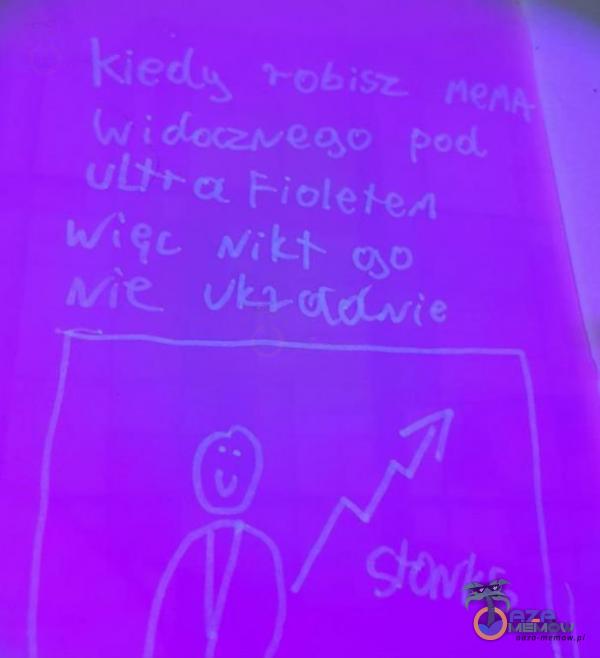 kiedy robisz MeMA
WidoczNego pod
ultra FioleteM
Więc Nikt go
Nie UkradNie
Stonks
Oaza
MEMÓW
oaza-memow.pl